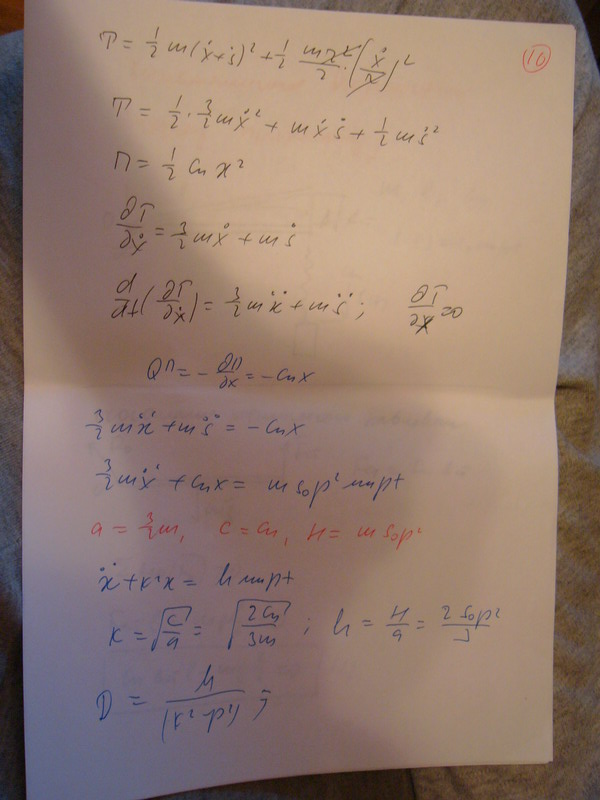 10
T = 1/2 m(ẋ+ṡ)² + 1/2 mr²/2 · (ẋ/r)²
T = 1/2 · 3/2 mẋ² + mẋṡ + 1/2 mṡ²
П = 1/2 cп x²
∂T/∂ẋ = 3/2 mẋ + mṡ
d/dt(∂T/∂ẋ) = 3/2 mẍ + ms̈ ; ∂T/∂x = 0
Qп = - ∂П/∂x = - cпx
3/2 mẍ + ms̈ = - cпx
3/2 mẍ + cпx = m s₀p² sin pt
a = 3/2 m, c = cп, H = m s₀p²
ẍ + k²x = h sin pt
k = √(c/a) = √(2cп/3m) ; h = H/a = 2 s₀p²/3
D = h/(k²-p²) ;